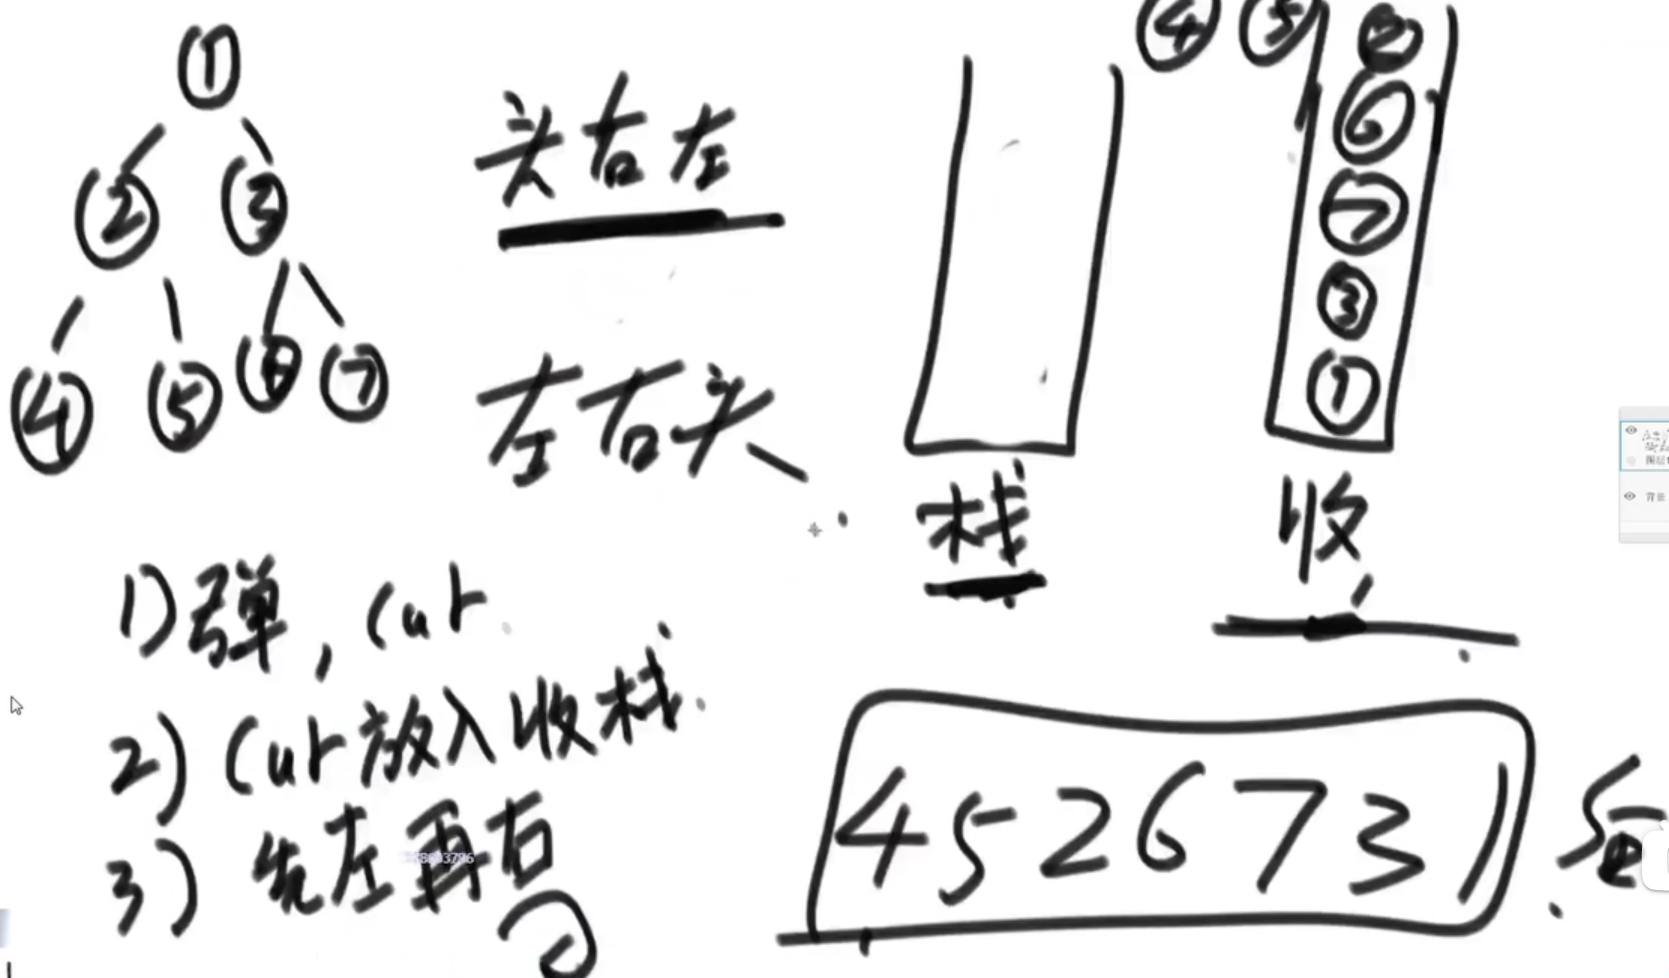 ①
② ③
④ ⑤ ⑥ ⑦
头右左
左右头
④ ⑤ ②
⑥
⑦
③
①
栈
收
1) 弹, cur
2) cur 放入收栈
3) 先左再右
4 5 2 6 7 3 1